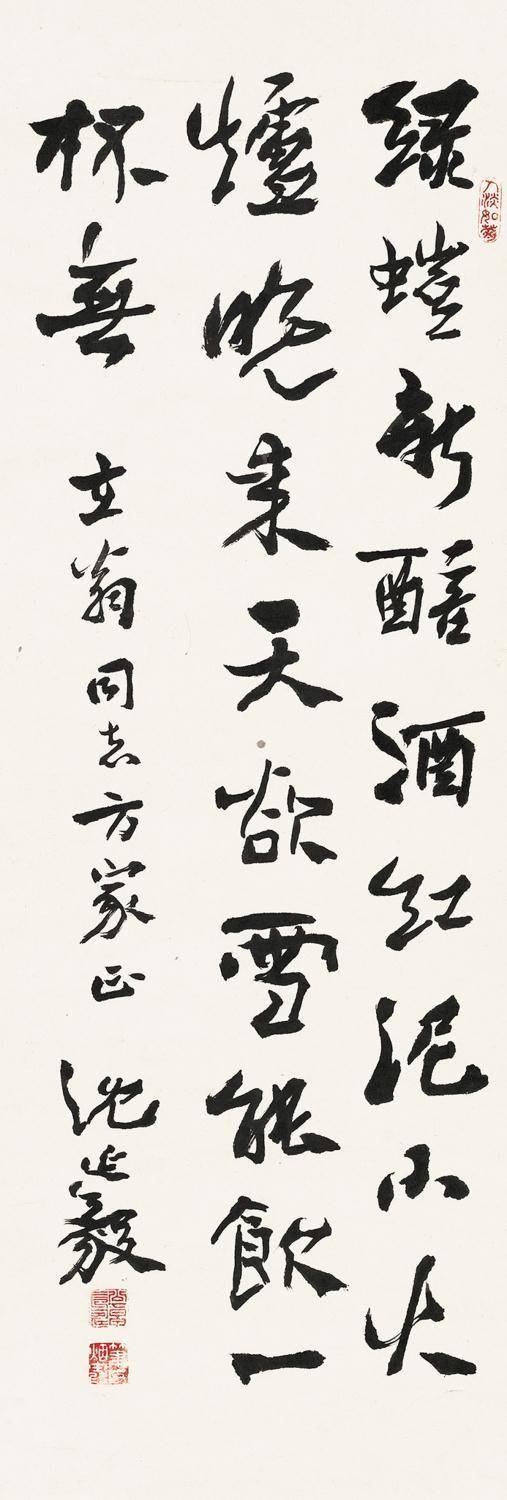 人淡如菊
綠螘新醅酒紅泥小火
爐晚來天欲雪能飲一
杯無 立翁同志方家正 沈延毅